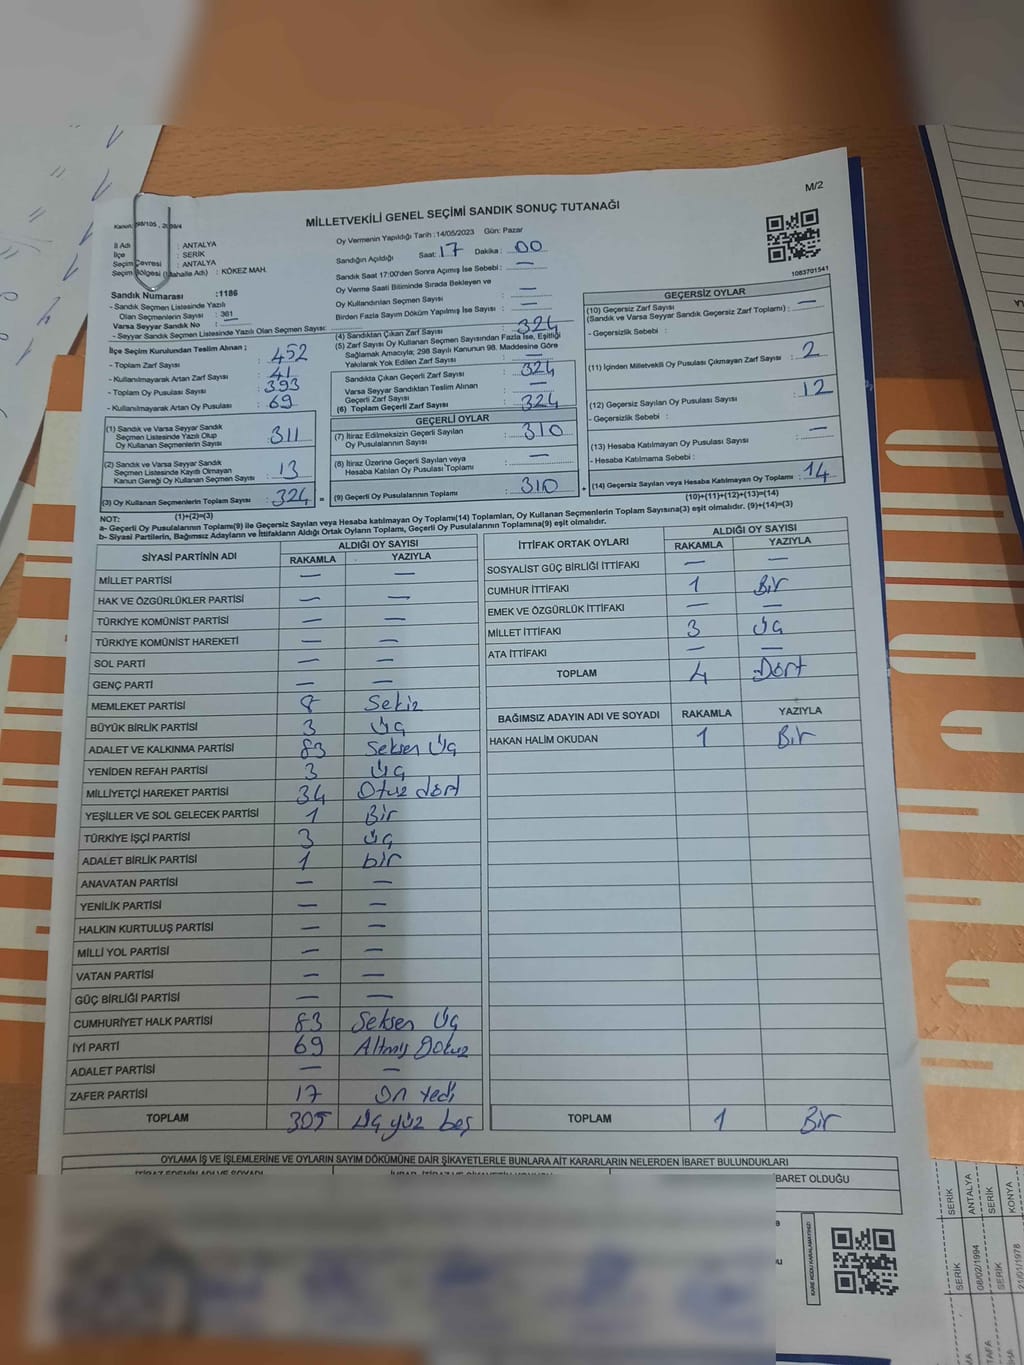 M/2
MİLLETVEKİLİ GENEL SEÇİMİ SANDIK SONUÇ TUTANAĞI
İl Adı : ANTALYA
İlçe : SERİK
Seçim Çevresi : ANTALYA
Seçim Bölgesi (Mahalle Adı) : KÖKEZ MAH.
Sandık Numarası :1186
- Sandık Seçmen Listesinde Yazılı
Olan Seçmenlerin Sayısı : 361
Varsa Seyyar Sandık No : —
- Seyyar Sandık Seçmen Listesinde Yazılı Olan Seçmen Sayısı:
İlçe Seçim Kurulundan Teslim Alınan ;
- Toplam Zarf Sayısı : 452
- Kullanılmayarak Artan Zarf Sayısı : 41
- Toplam Oy Pusulası Sayısı : 393
- Kullanılmayarak Artan Oy Pusulası : 69
(1) Sandık ve Varsa Seyyar Sandık
Seçmen Listesinde Yazılı Olup
Oy Kullanan Seçmenlerin Sayısı : 311
(2) Sandık ve Varsa Seyyar Sandık
Seçmen Listesinde Kayıtlı Olmayan
Kanun Gereği Oy Kullanan Seçmen Sayısı : 13
(3) Oy Kullanan Seçmenlerin Toplam Sayısı : 324 =
(1)+(2)=(3)
Oy Vermenin Yapıldığı Tarih :14/05/2023 Gün: Pazar
Sandığın Açıldığı Saat: 17 Dakika : 00
Sandık Saat 17:00'den Sonra Açılmış İse Sebebi : —
Oy Verme Saati Bitiminde Sırada Bekleyen ve
Oy Kullandırılan Seçmen Sayısı : —
Birden Fazla Sayım Döküm Yapılmış İse Sayısı : —
(4) Sandıktan Çıkan Zarf Sayısı : 324
(5) Zarf Sayısı Oy Kullanan Seçmen Sayısından Fazla İse, Eşitliği
Sağlamak Amacıyla; 298 Sayılı Kanunun 98. Maddesine Göre
Yakılarak Yok Edilen Zarf Sayısı : —
Sandıkta Çıkan Geçerli Zarf Sayısı : 324
Varsa Seyyar Sandıktan Teslim Alınan
Geçerli Zarf Sayısı : —
(6) Toplam Geçerli Zarf Sayısı : 324
GEÇERLİ OYLAR
(7) İtiraz Edilmeksizin Geçerli Sayılan
Oy Pusulalarının Sayısı : 310
(8) İtiraz Üzerine Geçerli Sayılan veya
Hesaba Katılan Oy Pusulası Toplamı : —
(9) Geçerli Oy Pusulalarının Toplamı : 310 +
1083701541
GEÇERSİZ OYLAR
(10) Geçersiz Zarf Sayısı
(Sandık ve Varsa Seyyar Sandık Geçersiz Zarf Toplamı) : —
- Geçersizlik Sebebi :
(11) İçinden Milletvekili Oy Pusulası Çıkmayan Zarf Sayısı : 2
(12) Geçersiz Sayılan Oy Pusulası Sayısı : 12
- Geçersizlik Sebebi :
(13) Hesaba Katılmayan Oy Pusulası Sayısı : —
- Hesaba Katılmama Sebebi :
(14) Geçersiz Sayılan veya Hesaba Katılmayan Oy Toplamı : 14
(10)+(11)+(12)+(13)=(14)
NOT:
a- Geçerli Oy Pusulalarının Toplamı(9) ile Geçersiz Sayılan veya Hesaba katılmayan Oy Toplamı(14) Toplamları, Oy Kullanan Seçmenlerin Toplam Sayısına(3) eşit olmalıdır. (9)+(14)=(3)
b- Siyasi Partilerin, Bağımsız Adayların ve İttifakların Aldığı Ortak Oyların Toplamı, Geçerli Oy Pusulalarının Toplamına(9) eşit olmalıdır.
SİYASİ PARTİNİN ADI ALDIĞI OY SAYISI
RAKAMLA YAZIYLA
MİLLET PARTİSİ — —
HAK VE ÖZGÜRLÜKLER PARTİSİ — —
TÜRKİYE KOMÜNİST PARTİSİ — —
TÜRKİYE KOMÜNİST HAREKETİ — —
SOL PARTİ — —
GENÇ PARTİ — —
MEMLEKET PARTİSİ 8 Sekiz
BÜYÜK BİRLİK PARTİSİ 3 Üç
ADALET VE KALKINMA PARTİSİ 83 Seksen Üç
YENİDEN REFAH PARTİSİ 3 Üç
MİLLİYETÇİ HAREKET PARTİSİ 34 Otuz dört
YEŞİLLER VE SOL GELECEK PARTİSİ 1 Bir
TÜRKİYE İŞÇİ PARTİSİ 3 Üç
ADALET BİRLİK PARTİSİ 1 bir
ANAVATAN PARTİSİ — —
YENİLİK PARTİSİ — —
HALKIN KURTULUŞ PARTİSİ — —
MİLLİ YOL PARTİSİ — —
VATAN PARTİSİ — —
GÜÇ BİRLİĞİ PARTİSİ — —
CUMHURİYET HALK PARTİSİ 83 Seksen Üç
İYİ PARTİ 69 Altmış Dokuz
ADALET PARTİSİ — —
ZAFER PARTİSİ 17 On Yedi
TOPLAM 305 Üç yüz beş
İTTİFAK ORTAK OYLARI ALDIĞI OY SAYISI
RAKAMLA YAZIYLA
SOSYALİST GÜÇ BİRLİĞİ İTTİFAKI — —
CUMHUR İTTİFAKI 1 Bir
EMEK VE ÖZGÜRLÜK İTTİFAKI — —
MİLLET İTTİFAKI 3 Üç
ATA İTTİFAKI — —
TOPLAM 4 Dört
BAĞIMSIZ ADAYIN ADI VE SOYADI RAKAMLA YAZIYLA
HAKAN HALİM OKUDAN 1 Bir
TOPLAM 1 Bir
OYLAMA İŞ VE İŞLEMLERİNE VE OYLARIN SAYIM DÖKÜMÜNE DAİR ŞİKAYETLERLE BUNLARA AİT KARARLARIN NELERDEN İBARET BULUNDUKLARI
BARET OLDUĞU
SERİK
ANTALYA
SERİK
KONYA
SERİK
08/02/1994
SERİK
21/01/1978